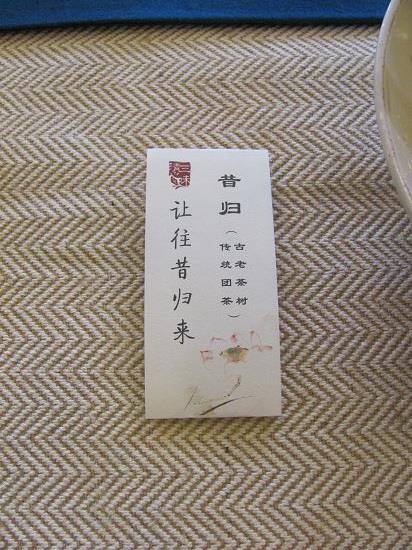 昔归
（古老茶树
传统团茶）
让往昔归来